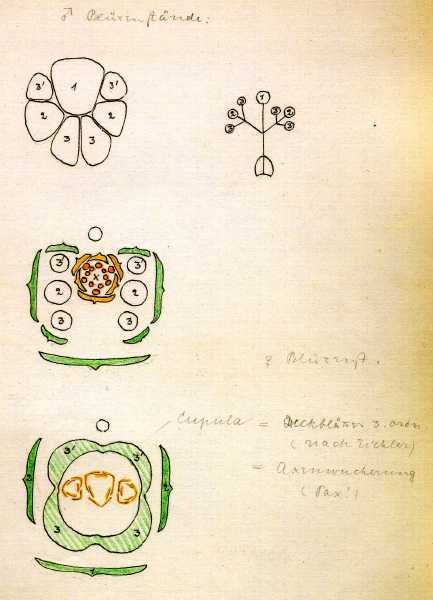 ♂ Blütenstände:
3' 1 3'
2 2
3 3
1
3 2
2 3
3 3
3' 3'
2 2
3 3
♀ Blütenst.
Cupula = Deckblätter 3. Ordn
(nach Eichler)
= Axenwucherung
(Pax!)
3' 3'
2 2
3 3